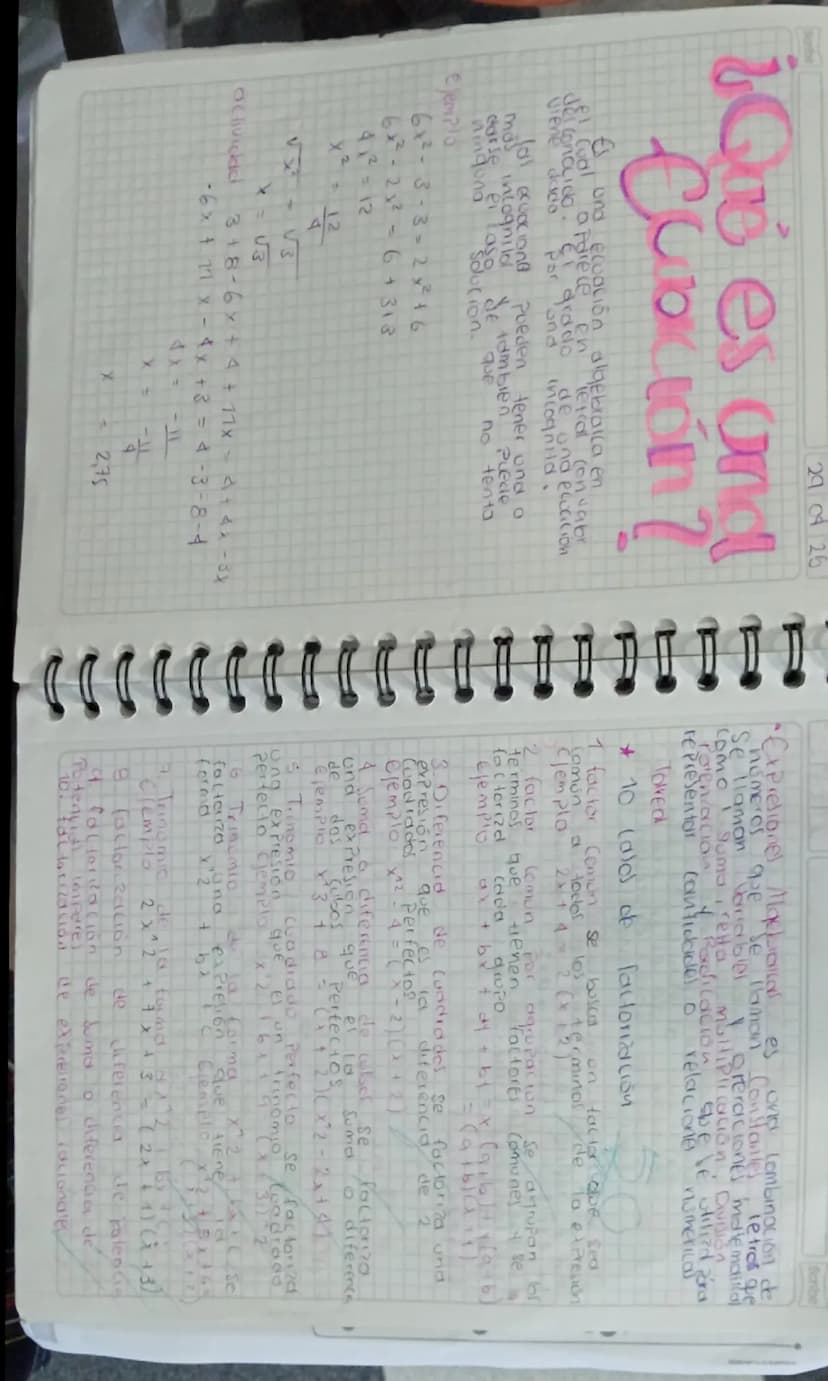 29 04 26
¿Qué es una
Ecuación?
Es una ecuación algebraica en
el cual aparece en letra con valor
desconocido. El grado de una ecuación
viene dado por una incognita.
las ecuaciones pueden tener una o
mas incognita y tambien puede
darse el caso de que no tenta
ninguna solución.
Ejemplo
6x² - 3 - 3 = 2x² + 6
6x² - 2x² = 6 + 3+3
4x² = 12
x² = 12/4
√x² = √3
x = √3
actividad 3 + 8 - 6x + 4 + 11x = 4 + 4x - 3x
-6x + 11x - 4x + 3 = 4 - 3 - 8 - 4
4x = -11
x = -11/4
x = 2,75
• Expresiones Algebraicas es una combinación de
números que se llaman constantes letras que
se llaman variables y operaciones matematica
como suma, resta multiplicación, División
potenciación y Radicación que se utiliza para
representar cantidades o relaciones númerica
Tarea
* 10 casos de factorización
1 factor común se busca un factor que sea
común a todos los terminos de la expresion
Ejemplo 2x + 4 = 2(x+2)
2 factor común por agrupacion se agrupan los
terminos que tienen factores comunes y se
factoriza cada grupo
Ejemplo ax + bx + a + b = x(a+b) + (a+b)
= (a+b)(x+1)
3 Diferencia de cuadrados se factoriza una
expresión que es la diferencia de 2
cuadrados perfectos
Ejemplo x^2 - 4 = (x-2)(x+2)
4 Suma o diferencia de cubos se factoriza
una expresion que es la suma o diferencia
de dos cubos perfectos
Ejemplo x^3 + 8 = (x+2)(x^2 - 2x + 4)
5 Trinomio cuadrado perfecto se factoriza
una expresión que es un trinomio cuadrado
perfecto Ejemplo x^2 + 6x + 9 (x+3)^2
6 Trinomio de la forma x^2 + bx + c se
factoriza una expresión que tiene la
forma x^2 + bx Ejemplo x^2 + 5x + 6
7 Trinomio de la forma ax^2 + bx + c
Ejemplo 2x^2 + 7x + 3 = (2x+1)(x+3)
8 factorización de diferencia de potencia
9 factorización de suma o diferencia de
potencias impares
10 factorización de expresiones racionales